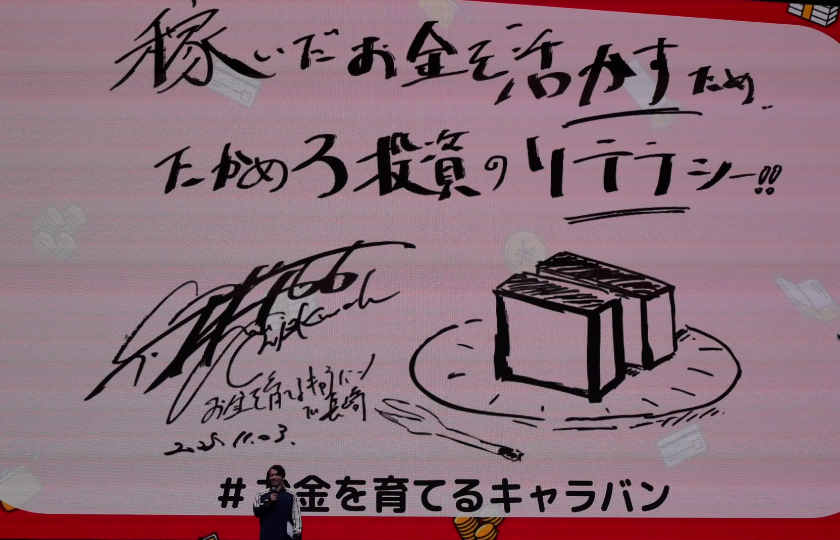 稼いだお金を活かすため、
たかめろ投資のリテラシー!!
お金を育てるキャラバン
in 長崎
2025.11.03.
#お金を育てるキャラバン